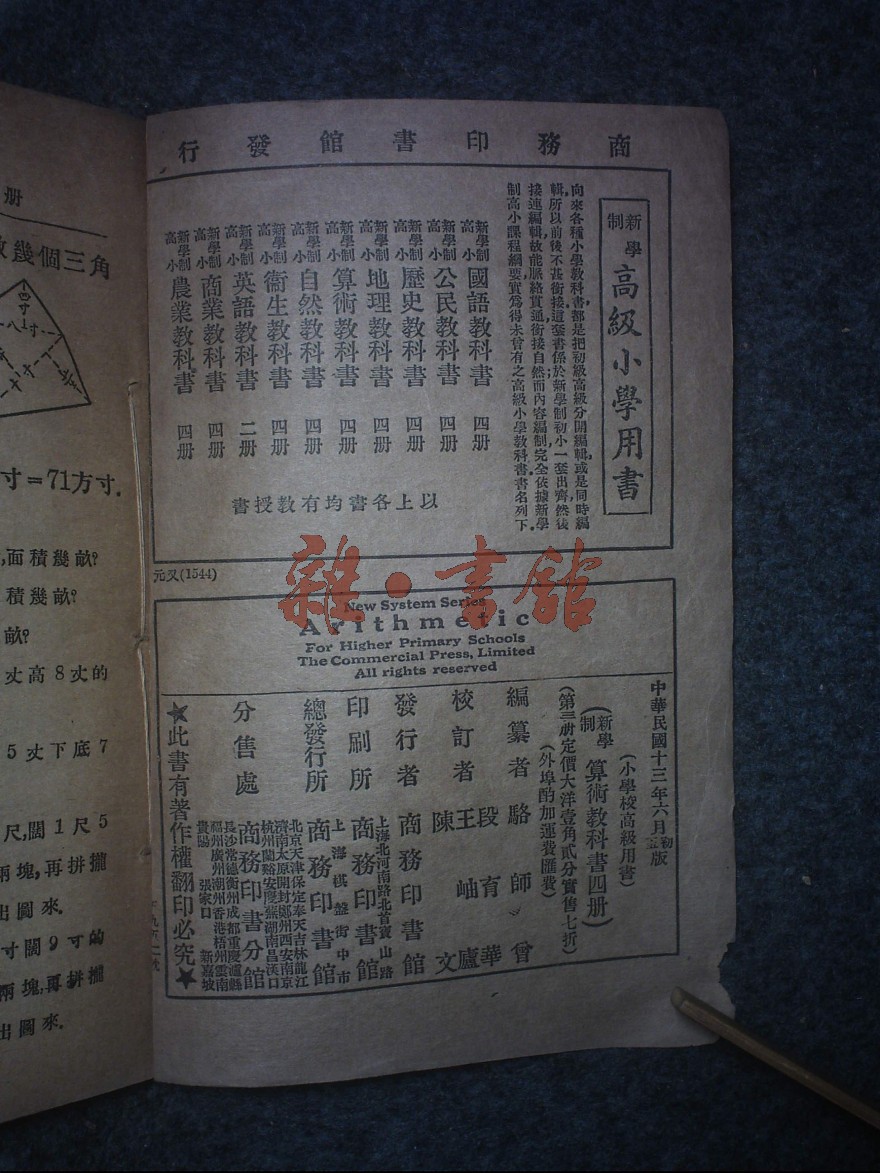 商務印書館發行
新學制高級小學用書
向來各種小學教科書都是把初級高級分開編輯,或是同時編
輯,所以前後不甚銜接,這套書係於新學制初小一套出齊然後
接連編輯,故能脈絡貫通,銜接自然;而內容編制,完全依據新學
制高小課程綱要,實為得未曾有之高級小學教科書.書名列下.
新學制高小 國語教科書 四册
新學制高小 公民教科書 四册
新學制高小 歷史教科書 四册
新學制高小 地理教科書 四册
新學制高小 算術教科書 四册
新學制高小 自然教科書 四册
新學制高小 衞生教科書 四册
新學制高小 英語教科書 二册
新學制高小 商業教科書 四册
新學制高小 農業教科書 四册
以上各書均有教授書
元又(1544)
雜·書館
New System Series
Arithmetic
For Higher Primary Schools
The Commercial Press, Limited
All rights reserved
中華民國十三年六月初版
(小學校高級用書)
(新學制 算術教科書四册)
(第三册定價大洋壹角貳分實售七折)
(外埠酌加運費匯費)
編纂者 駱師曾
段育華
校訂者 王岫廬
陳文
發行者 商務印書館
印刷所 上海北河南路北首寶山路
商務印書館
總發行所 上海棋盤街中市
商務印書館
分售處 北京天津保定奉天吉林龍江
濟南太原開封鄭州西安南京
杭州蘭谿安慶蕪湖南昌漢口
商務印書分館
長沙常德衡州成都重慶瀘縣
福州廣州潮州香港梧州雲南
貴陽 張家口 新嘉坡
★此書有著作權翻印必究★
册
幾個三角
四寸
八寸
寸=71方寸.
,面積幾畝?
積幾畝?
畝?
丈高8丈的
5丈下底7
尺,闊1尺5
兩塊,再拼攏
出圖來.
寸闊9寸的
兩塊,再拼攏
出圖來.